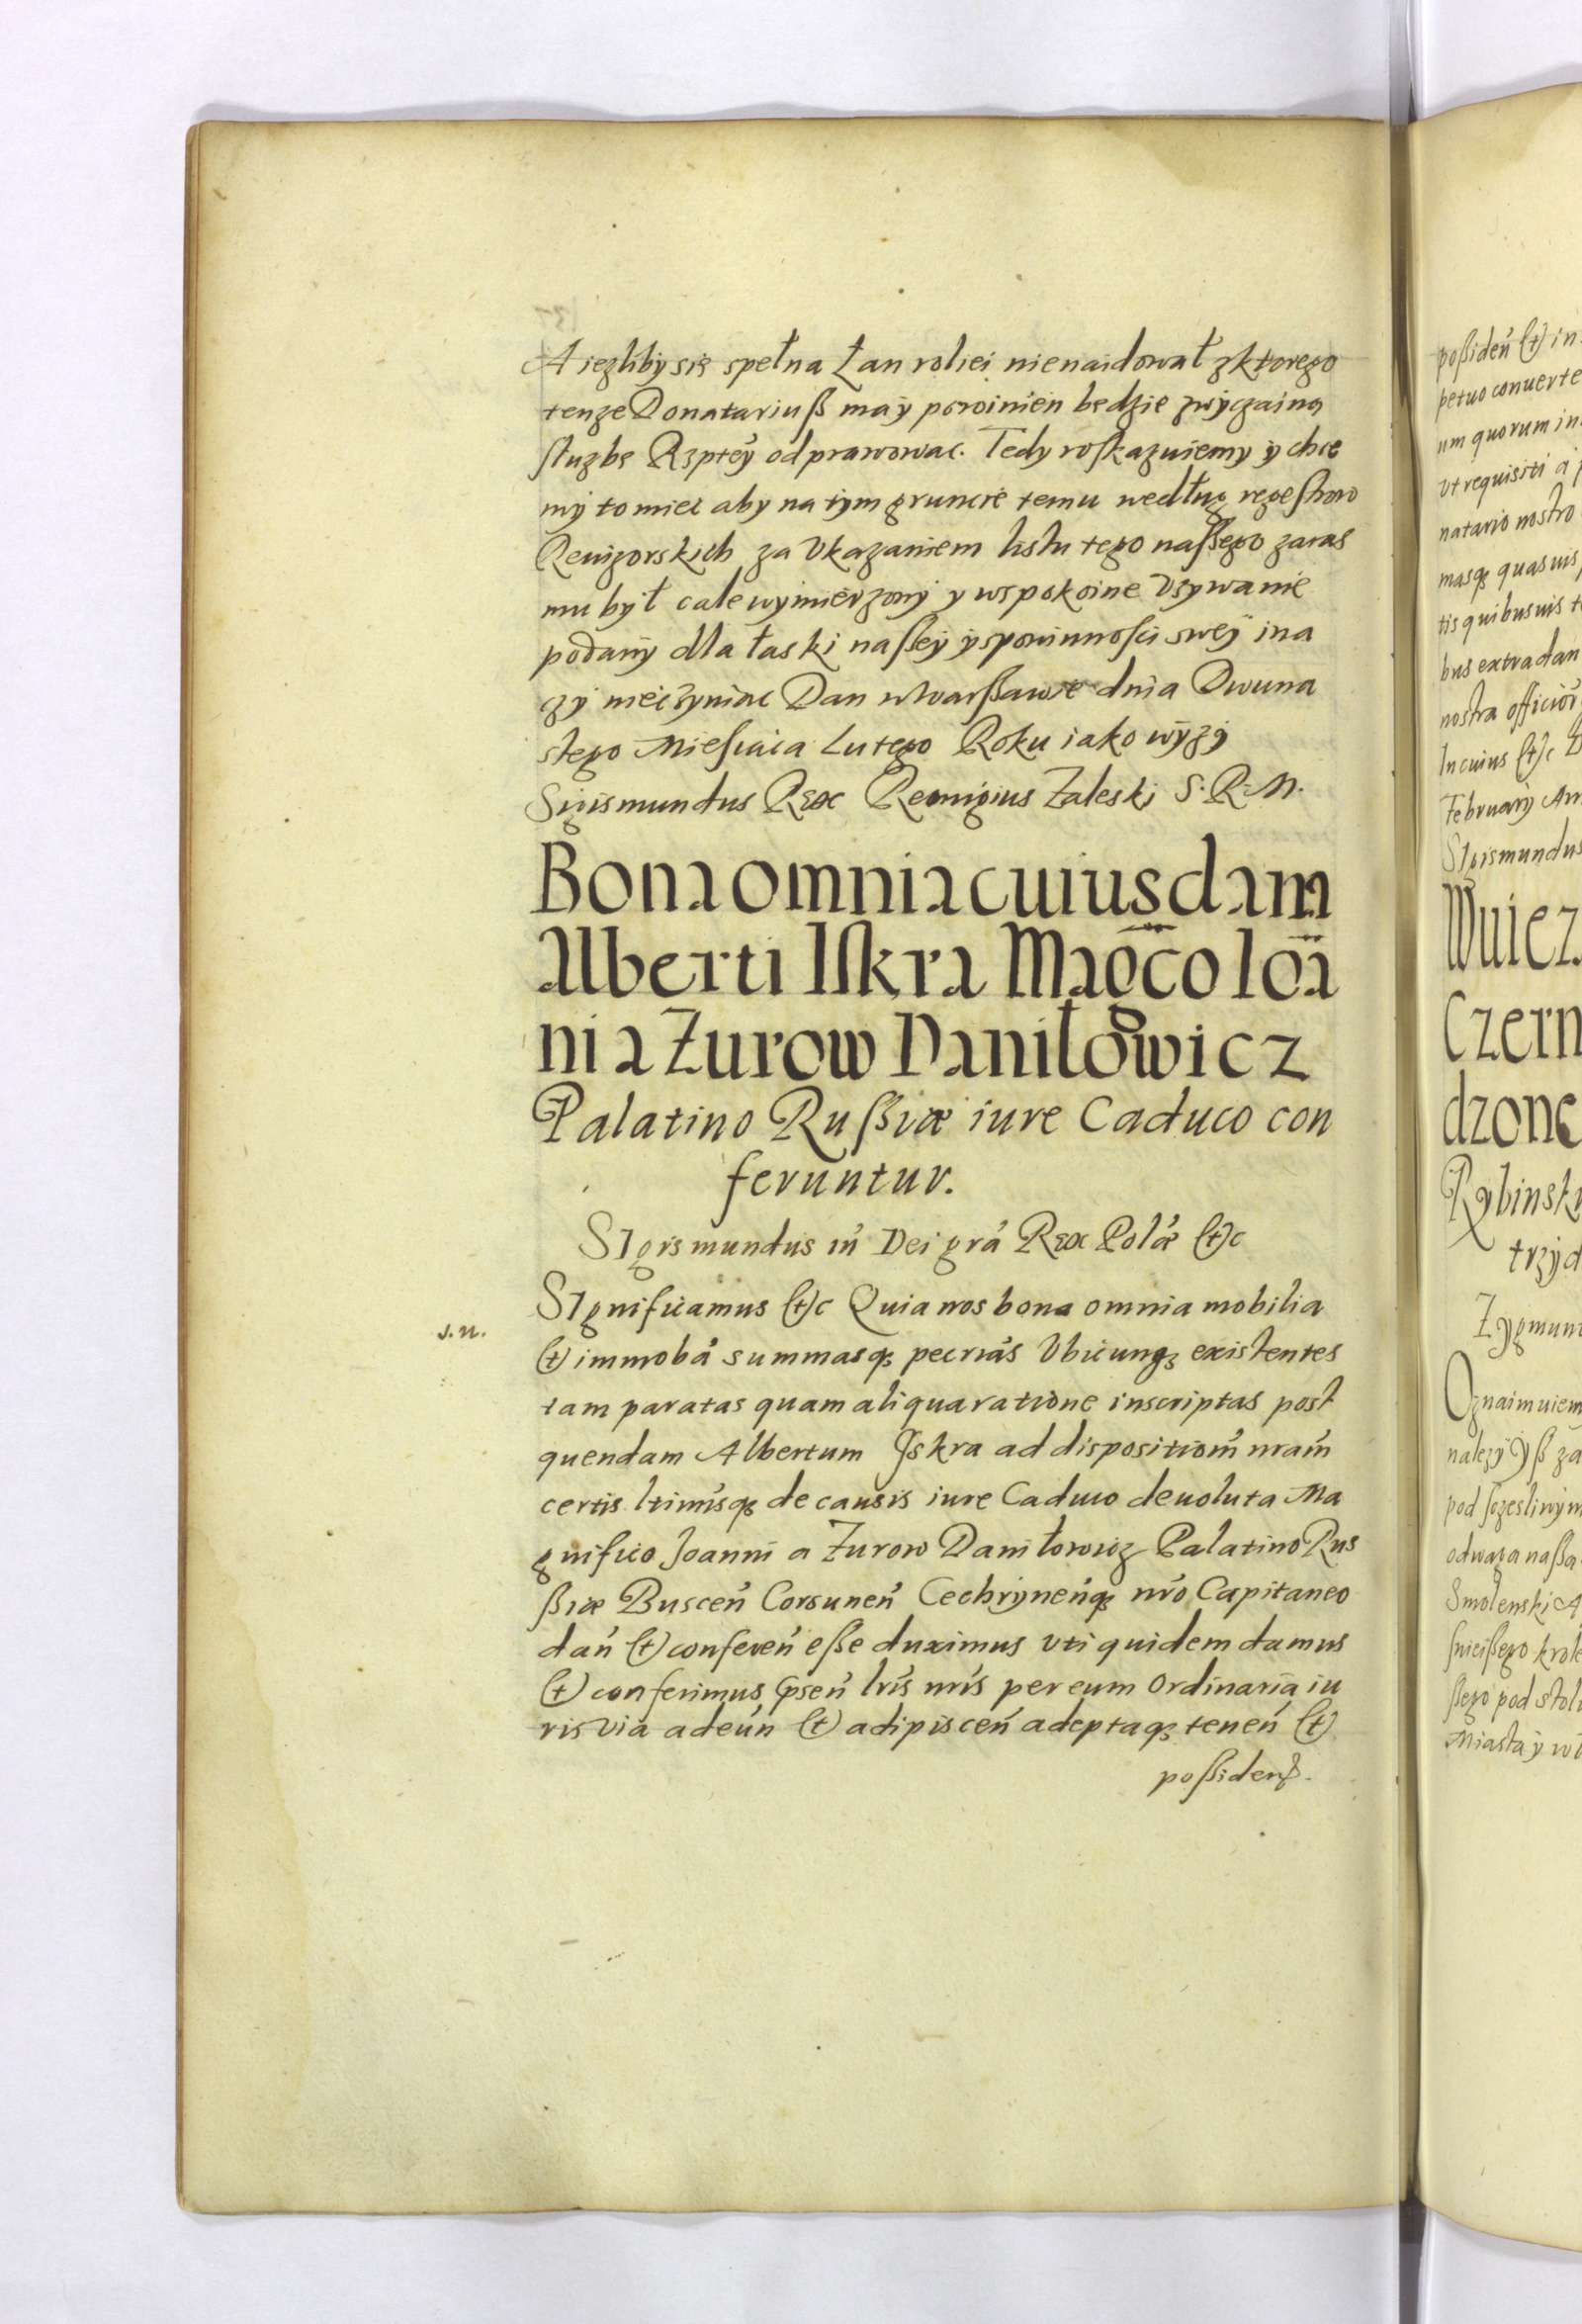 A iezliby się spełna Łan roliei nienaidował z ktorego
tenze Donatariuß ma ÿ powinien będzie zwyczainą
służbę Rzptéy odprawowac. Tedy roskazuiemy ÿ chce
mÿ to miec aby na tym gruncie temu według regestrow
Rewizorskich za Ukazaniem listu tego naßego zaras
mu był cale wymierzonÿ y w spokoine Uzywanie
podanÿ dla łaski naßeÿ ÿ spowinnosci sweÿ ina
czÿ nieiczyniac Dan w Warßawie dnia Dwuna
stego Miesiaca Lutego Roku iako wÿzÿ
Sigismundus Rex Remigius Zaleski S. R. M.
Bona omnia cuiusdam
Alberti Iskra Magco Ioa
ni a Zurow Daniłowicz
Palatino Rußiæ iure Caduco con
feruntur.
SIgismundus iii Dei grã Rex Polæ (et)c
SIgnificamus (et)c Quia nos bona omnia mobilia
s. n.
(et) immobã summasq; pecrias Vbicunq; existentes
tam paratas quam aliqua ratione inscriptas post
quendam Albertum Iskra ad dispositiom nram
certis ltimisq; de causis iure Caduco deuoluta Ma
gnifico Joanni a Zurow Daniłowicz Palatino Rus
ßiæ Buscen Corsunen Cechrÿnenq; nro Capitaneo
dan (et) conferen eße duximus Uti quidem damus
(et) conferimus Psen lris nris per eum Ordinaria iu
ris via adeun (et) adipiscen adeptaq; tenen (et)
poßiden.
poßiden (et) in
petuo conuerte
um quorum in
Ut requisiti a
natario nostro
masq; quasuis
tis quibusuis
bus extradan
nostra officior
In cuius (et)c
Februarÿ An
SIgismundus
Wuiez
Czern
dzone
Rybinsk
trzyd
Zygmun
Oznaimuiem
nalezÿ Yß za
pod sczesliwym
odwaga naßa
Smolenski A
sniejßego krole
ßego pod stol
Miasta y